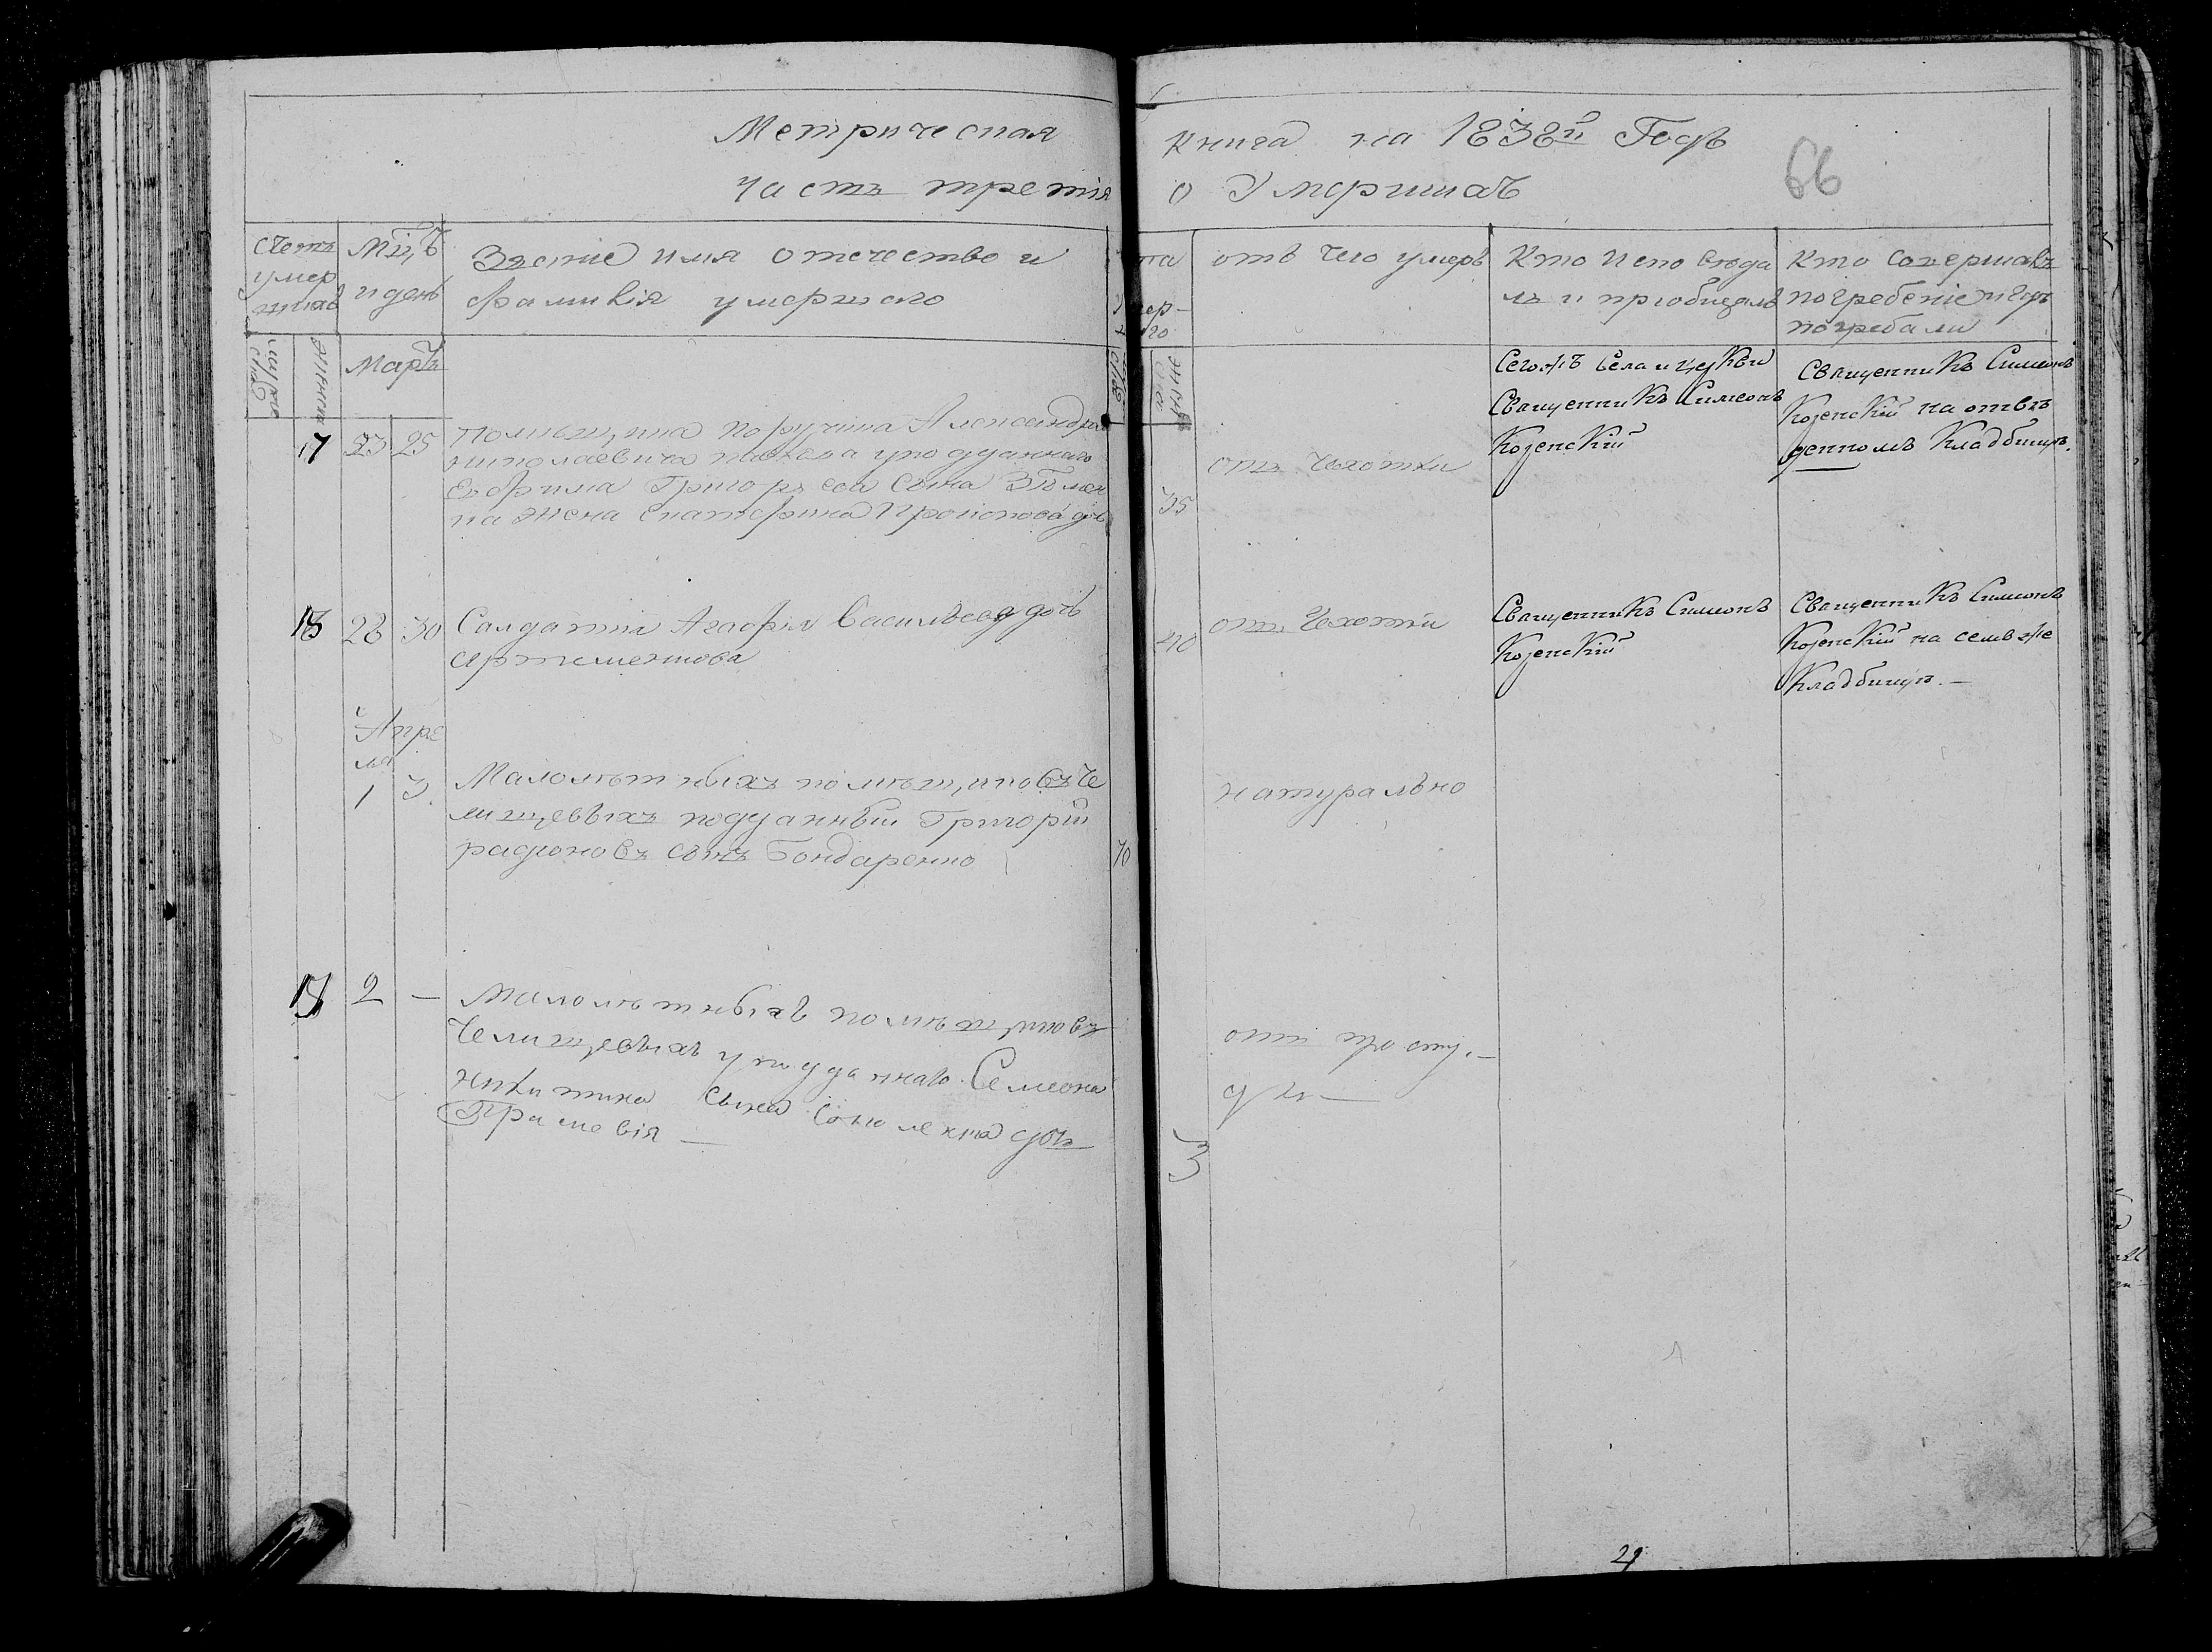 Метрическая книга на 1838й Годъ
часть третія о Умершихъ
66
счетъ умер шихъ
Мцъ и день
Званіе имя отчество и
фамилія умершого
отъ чего умеръ
Кто исповѣда
лъ и пріобщалъ
Кто совершалъ
погребеніе и гдѣ
погребали
Мартъ
17 23 25
Помѣщика поручика Александра
николаевича уподданнаго
Евфима Григорьева сына
на жена Екатерина Прокопова дочь
35
отъ Чахотки
Сегожъ села и церкви
Священникъ Симеонъ
Козенскій
Священникъ Симеонъ
Козенскій на отве
денномъ Кладбищѣ.
18 28 30
Салдатка Агафія Васильева дочь
артеменкова
40
отъ Чахотки
Священникъ Симеонъ
Козенскій
Священникъ Симеонъ
Козенскій на семъ же
Кладбищѣ. —
Апре
ля
1 3.
Малолѣтныхъ помѣщиковъ Че
лищевыхъ подданный Григорій
радіоновъ сынъ Бондаренко
70
натурально
2 —
Малолѣтныхъ помѣщиковъ
Челищевыхъ уподданнаго Семеона
никитина сына дочь
3
отъ просту. —
ды —
29